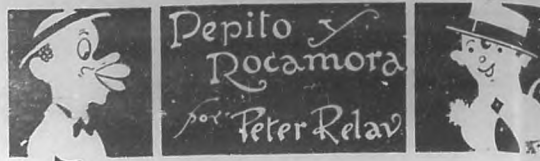 Pepito y
Rocamora
por
Peter Relav